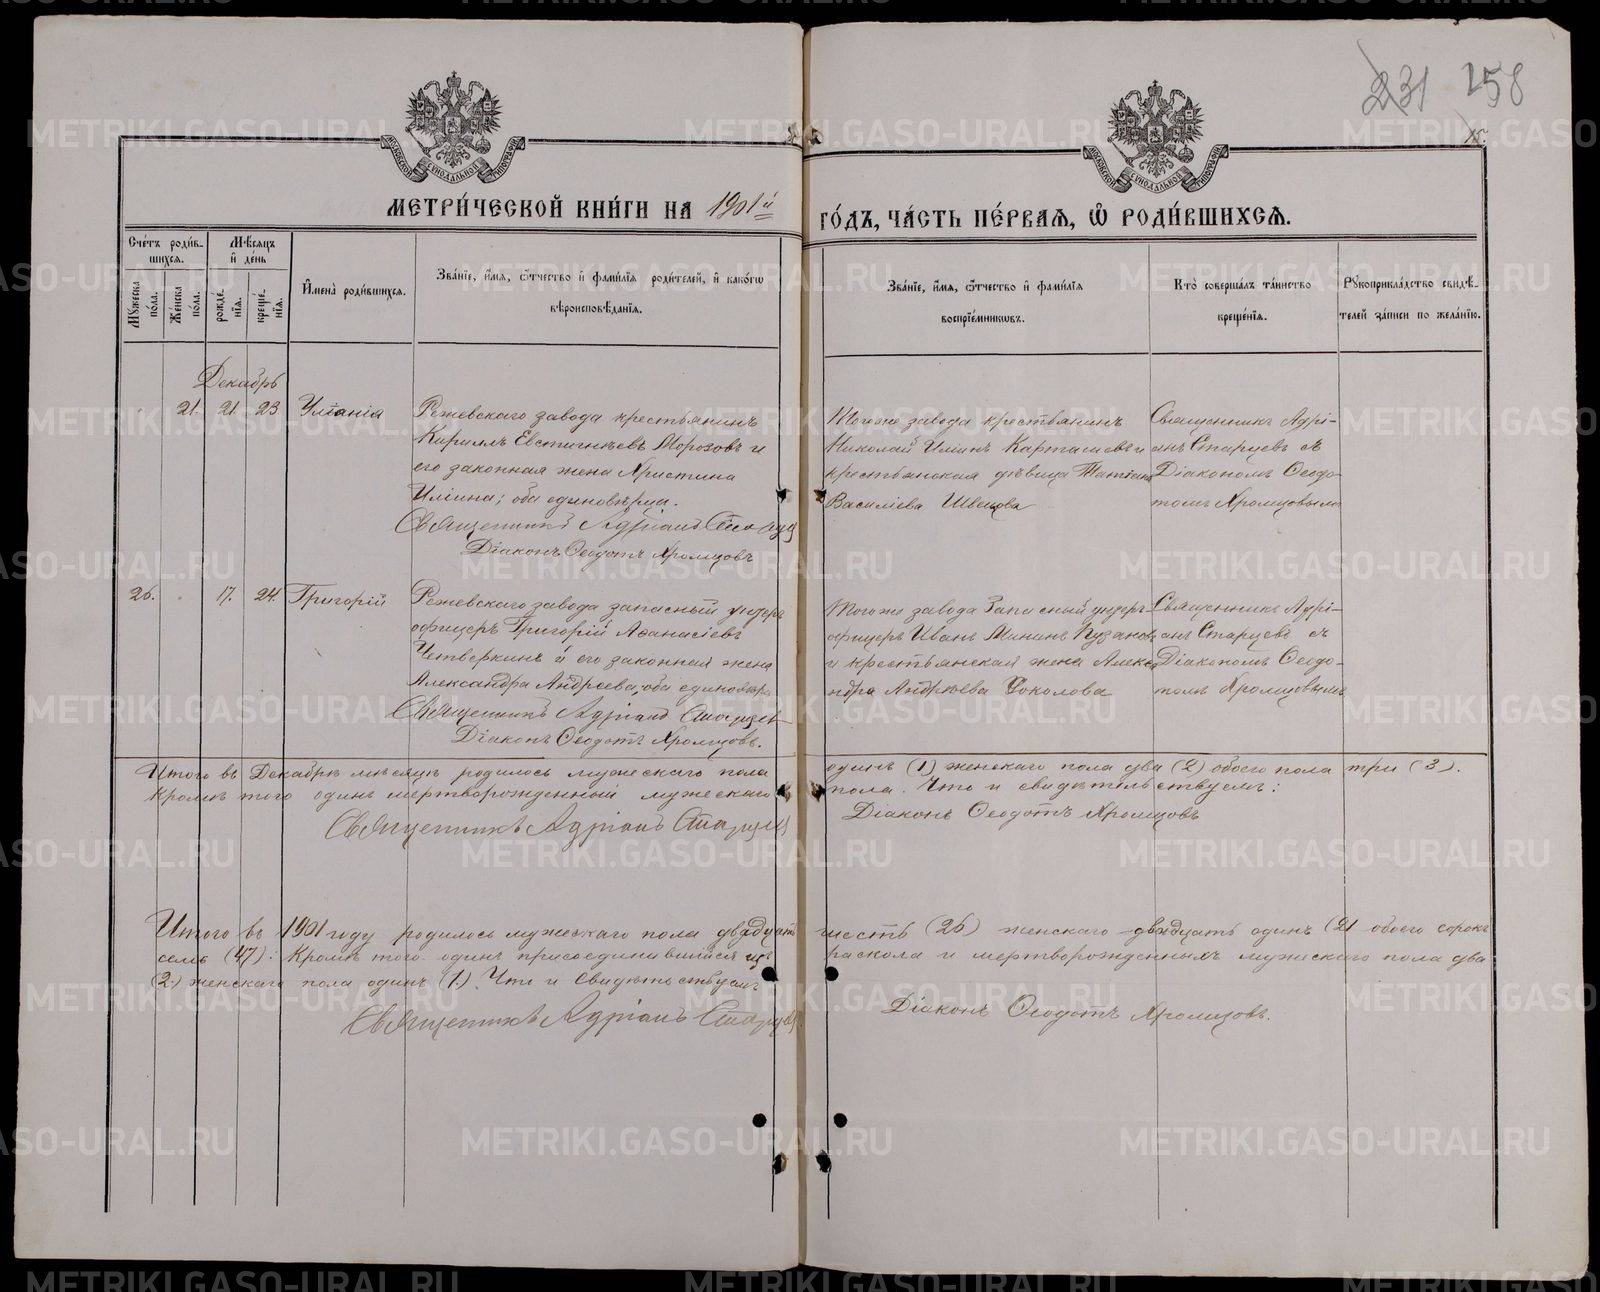 231 158
15
МОСКОВСКОЙ СѴНОДАЛЬНОЙ ТИПОГРАФІИ
МОСКОВСКОЙ СѴНОДАЛЬНОЙ ТИПОГРАФІИ
МЕТРИ́ЧЕСКОЙ КНИ́ГИ НА 1901й ГО́ДЪ, ЧА́СТЬ ПЕ́РВАЯ, Ѿ РОДИ́ВШИХСЯ.
Сче́тъ роди́вшихся.
Мужеска по́ла.
Же́нска по́ла.
Мѣ́сяцъ и҆ де́нь
рожде́нїя.
креще́нїя.
И҆мена̀ роди́вшихся.
Зва́нїе, и҆́мя, ѻ҆́тчество и҆ фами́лїя роди́телей, и҆ како́гѡ вѣроисповѣ́данїя.
Зва́нїе, и҆́мя, ѻ҆́тчество и҆ фами́лїя воспрїе́мникѡвъ.
Кто̀ соверша́лъ та́инство креще́нїя.
Рꙋкоприкла́дство свидѣ́телей за́писи по жела́нїю.
Декабрь
21. 21. 23. Уліанія
Режевскаго завода крестьянинъ
Кириллъ Евстигнѣевъ Морозовъ и
его законная жена Христина
Иліина; оба единовѣрцы.
Священникъ Адріанъ Старцевъ
Діаконъ Ѳеодотъ Хромцовъ
Тогоже завода крестьянинъ
Николай Иліинъ Карташевъ и
крестьянская дѣвица Татіана
Василіева Швецова
Священникъ Адрі-
анъ Старцевъ съ
Діакономъ Ѳеодо-
томъ Хромцовымъ
26. 17. 24. Григорій
Режевскаго завода запасный ундеръ
офицеръ Григорій Аѳанасіевъ
Четверкинъ и его законная жена
Александра Андреева, оба единовѣрцы
Священникъ Адріанъ Старцевъ
Діаконъ Ѳеодотъ Хромцовъ.
Тогоже завода Запасный ундеръ
офицеръ Иванъ Мининъ Пузановъ
и крестьянская жена Алекса
ндра Андреева Соколова
Священникъ Адрі-
анъ Старцевъ съ
Діакономъ Ѳеодо-
томъ Хромцовымъ
Итого въ Декабрѣ мѣсяцѣ родилось мужескаго пола одинъ (1) женскаго пола два (2) обоего пола три (3).
Кромѣ того одинъ мертворожденный мужескаго пола. Что и свидѣтельствуемъ:
Священникъ Адріанъ Старцевъ
Діаконъ Ѳеодотъ Хромцовъ
Итого въ 1901 году родилось мужескаго пола двадцать шесть (26) женскаго двадцать одинъ (21 обоего сорокъ
семь (47): Кромѣ того одинъ присоединившійся изъ раскола и мертворожденныхъ мужескаго пола два
(2) женскаго пола одинъ (1). Что и Свидѣтельствуемъ
Священникъ Адріанъ Старцевъ
Діаконъ Ѳеодотъ Хромцовъ.
METRIKI.GASO-URAL.RU